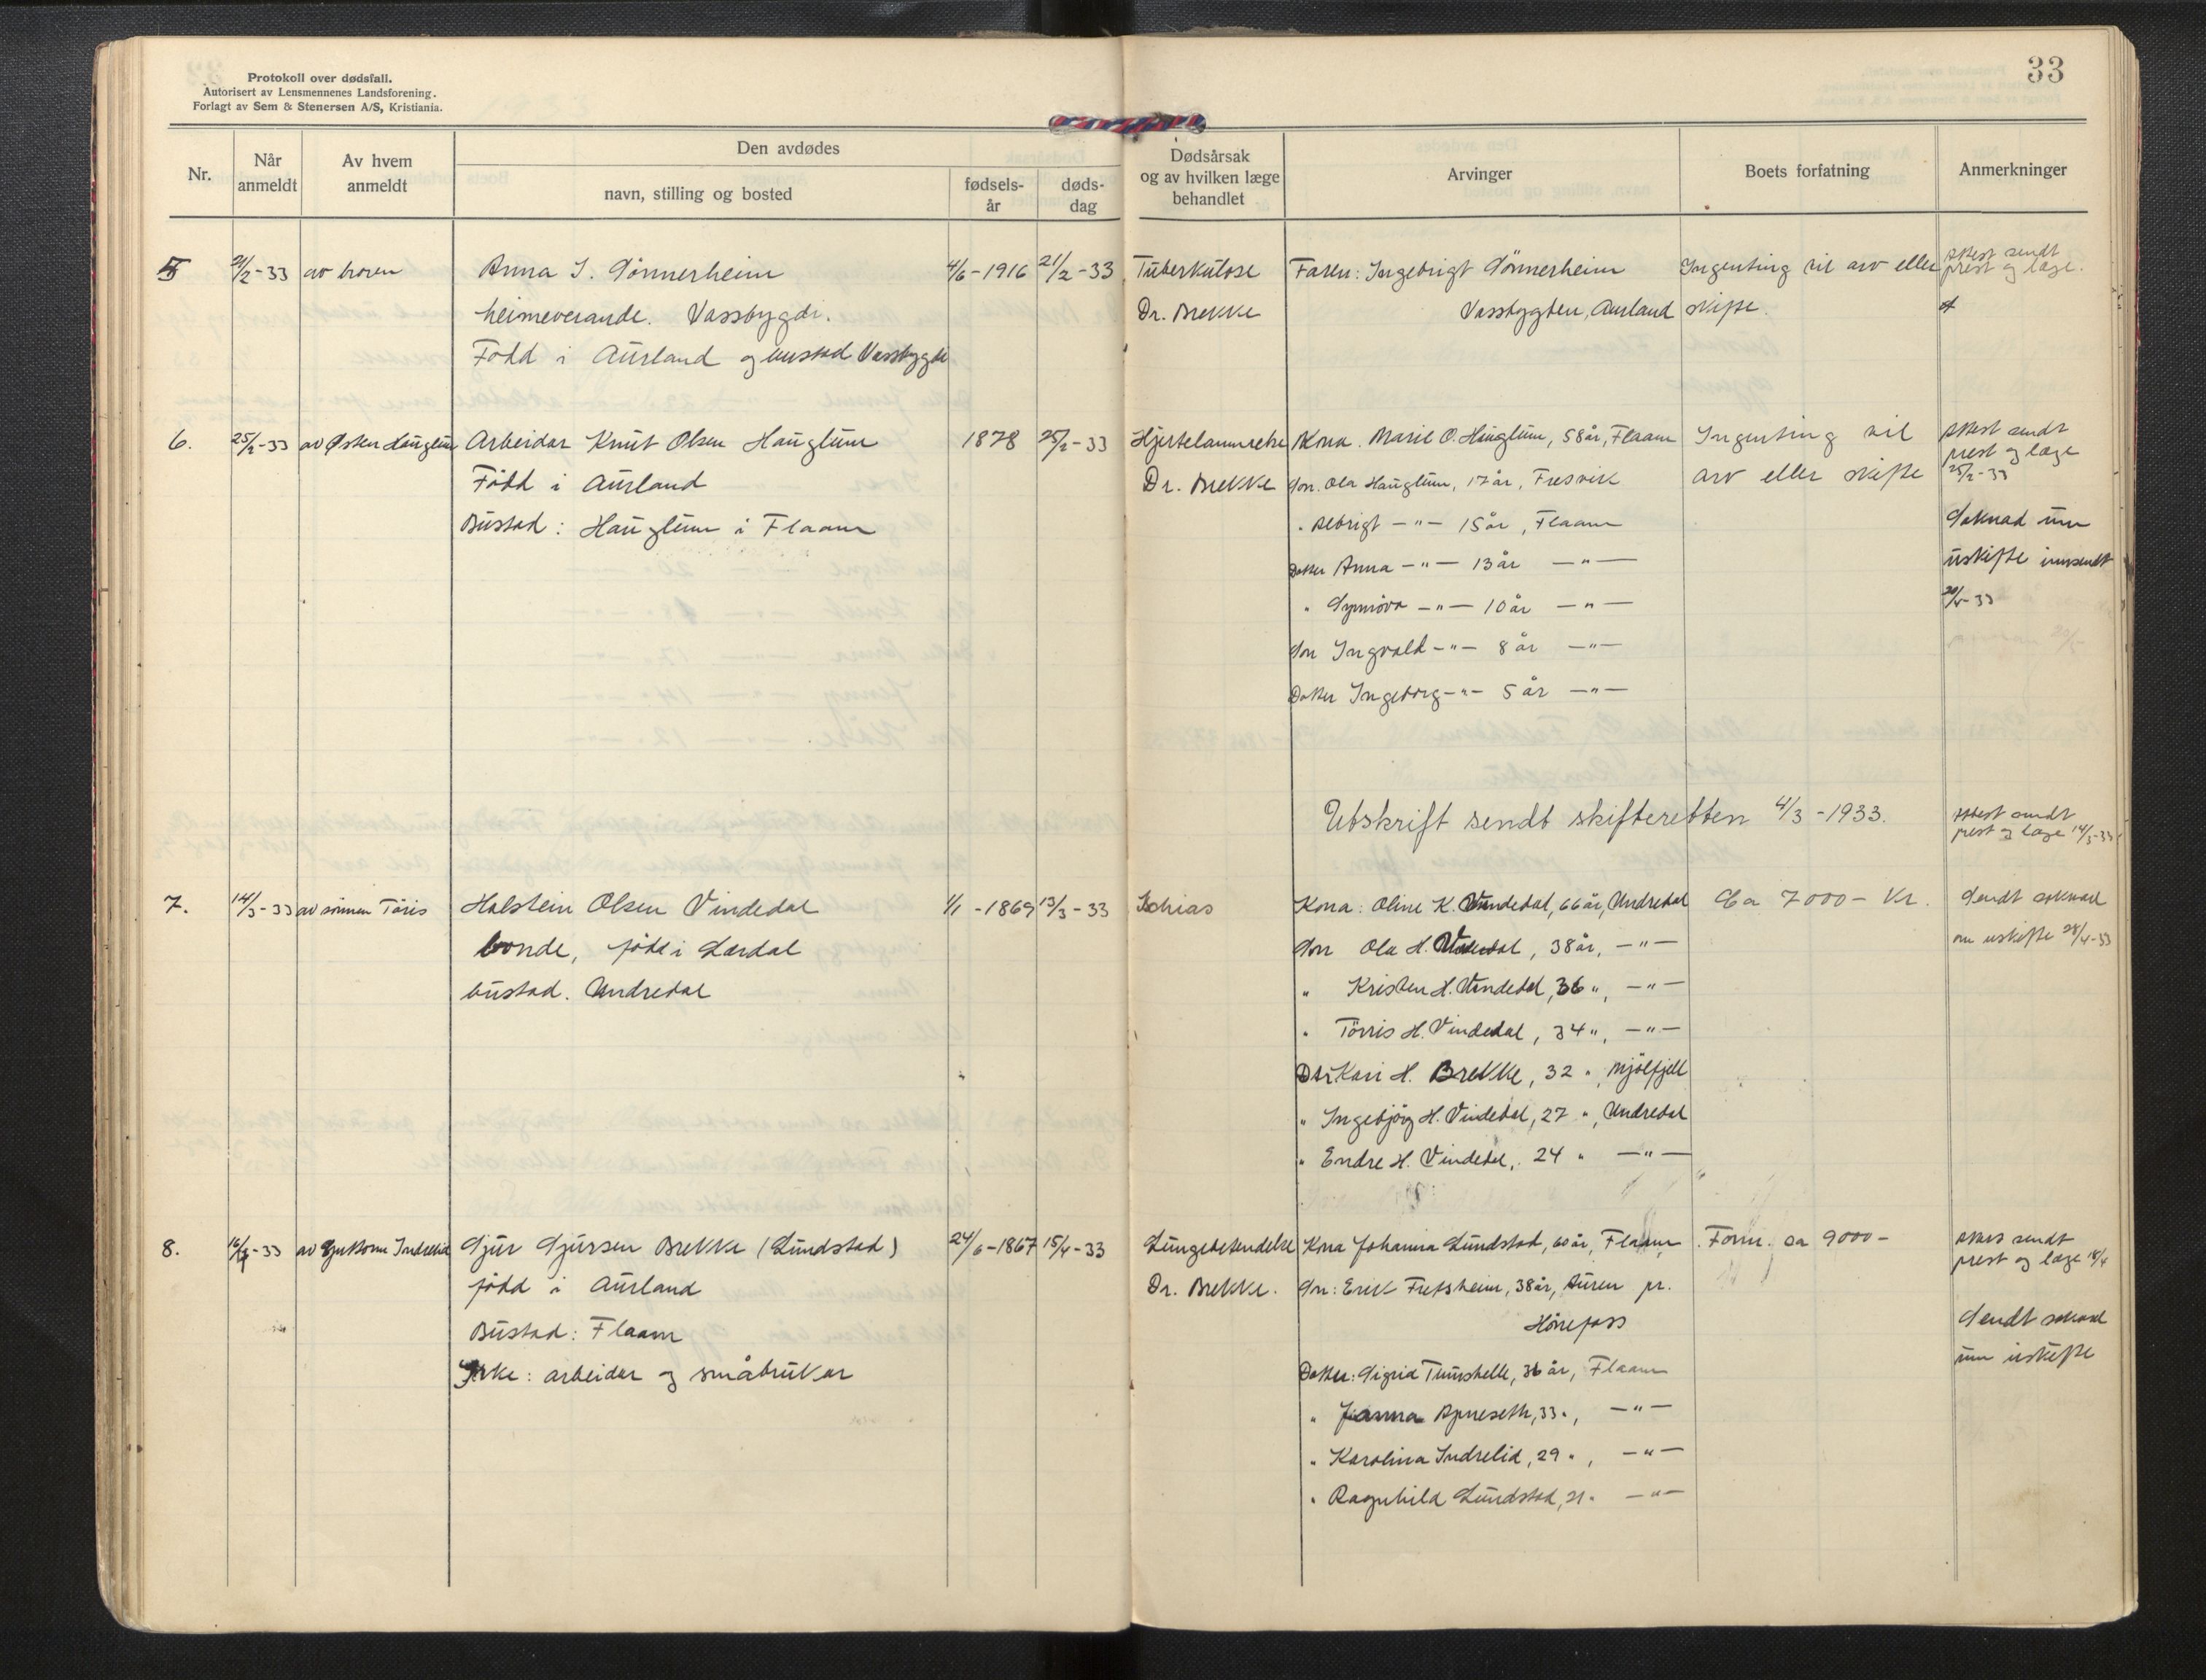 Protokoll over dødsfall.
Autorisert av Lensmennenes Landsforening.
Forlagt av Sem & Stenersen A/S, Kristiania.
33
Nr.
Når anmeldt
Av hvem anmeldt
Den avdødes
navn, stilling og bosted
fødsels-år
døds-dag
Dødsårsak og av hvilken læge behandlet
Arvinger
Boets forfatning
Anmerkninger
5 21/2-33 av broren Anna I. Sønnerheim 4/6-1916 21/2-33 Tuberkulose Faren: Ingebrigt Sønnerheim Ingenting til arv eller Attest sendt prest og læge.
heimeverande. Vassbygdi. Dr. Brekke Vassbygden, Aurland skifte.
Fødd i Aurland og bustad Vassbygdi
6. 25/2-33 av Østen Hauglum Arbeidar Knut Olsen Hauglum 1878 25/2-33 Hjertelammelse Kona. Marie O. Hauglum, 58 år, Flaam Ingenting til Attest sendt prest og læge
Fødd i Aurland Dr. Brekke Son. Ola Hauglum, 17 år, Fresvik arv eller skifte 25/2-33
Bustad: Hauglum i Flaam " Albrigt -"- 15 år, Flaam Søknad um
Dotter Anna -"- 13 år -"- uskifte innsendt
" Synnøva -"- 10 år -"- -33
Son Ingvald -"- 8 år -"-
Dotter Ingeborg -"- 5 år -"-
Utskrift sendt skifteretten 4/3-1933. Attest sendt
prest og læge 14/3-33
7. 14/3-33 av sønnen Tøris Halstein Olsen Vindedal 1/1-1869 13/3-33 Ischias Kona: Oline K. Vindedal, 66 år, Undredal Ca 7000- Kr. Sendt søknad
bonde, født i Lærdal Son Ola H. Vindedal, 38 år, -"- om uskifte 28/4-33
bustad. Undredal " Kristen H. Vindedal, 36 ", -"-
" Tørris H. Vindedal, 34 ", -"-
Dtr Kari H. Brekke, 32 ", Mjölfjell
" Ingebjörg H. Vindedal, 27 ", Undredal
" Endre H. Vindedal, 24 " -"-
8. 16/4-33 av Indrelid Sjur Sjursen Brekke (Lundstad) 24/6-1867 15/4-33 Lungebetendelse Kona Johanna Lundstad, 60 år, Flaam Form. ca 9000- Attest sendt
fødd i Aurland Dr. Brekke. Son: Erik Fretsheim, 38 år, pr. prest og læge 18/4
Bustad: Flaam Hønefoss Sendt søknad
Yrke: arbeidar og småbrukar Dotter: Sigrid Tunshelle, 36 år, Flaam um uskifte
" Janna 33 ", -"-
" Karolina Indrelid, 29 ", -"-
" Ragnhild Lundstad, 21 " -"-